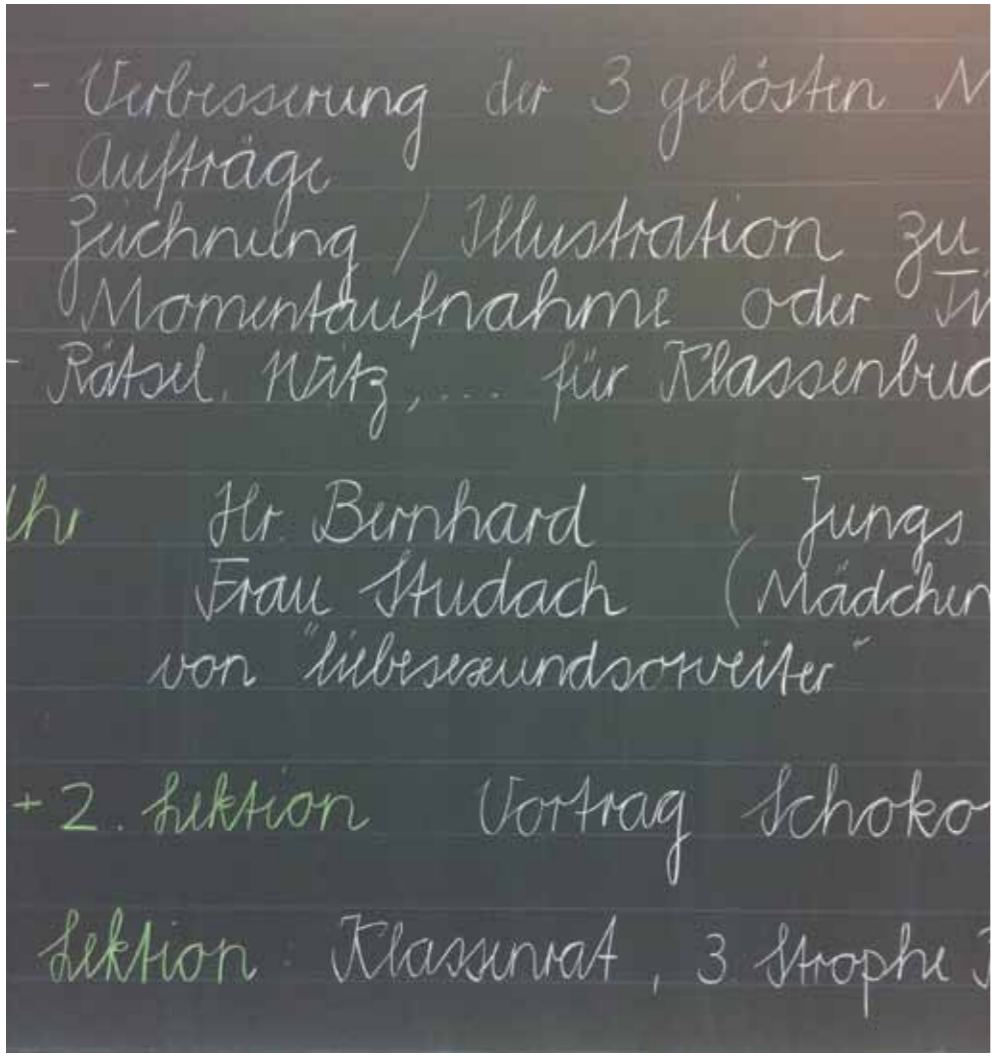 - Verbesserung der 3 gelösten
Aufträge
- Zeichnung / Illustration zu
Momentaufnahme oder
- Rätsel, Witz, .... für Klassenbuc
Uhr Hr. Bernhard ( Jungs
Frau Studach (Mädchen
von "liebesexundsoweiter"
+ 2. Lektion Vortrag Schoko
Lektion : Klassenrat, 3. Strophe